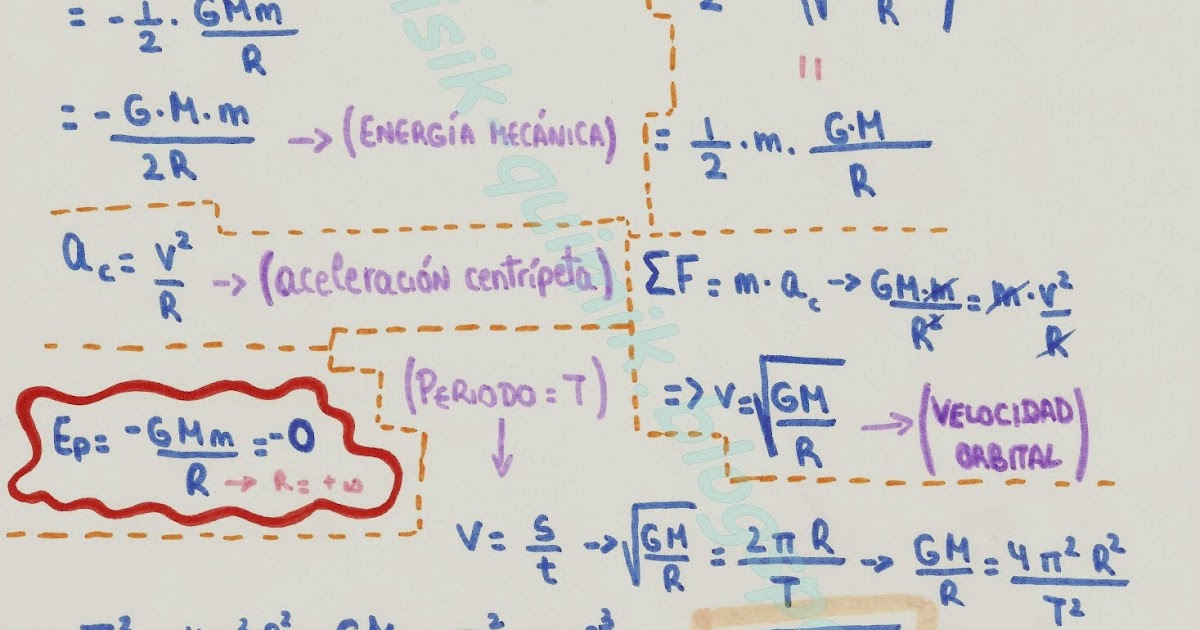 = - 1/2 · GMm/R
= - G·M·m/2R → (ENERGÍA MECÁNICA)
= 1/2 · m · G·M/R
a_c = v²/R → (aceleración centrípeta)
ΣF = m · a_c → GM·m/R² = m · v²/R
=> v = √(GM/R) → (VELOCIDAD
ORBITAL)
Ep = -GMm/R = -0
R → R = +∞
(PERIODO = T)
↓
V = s/t → √(GM/R) = 2πR/T → GM/R = 4π²R²/T²